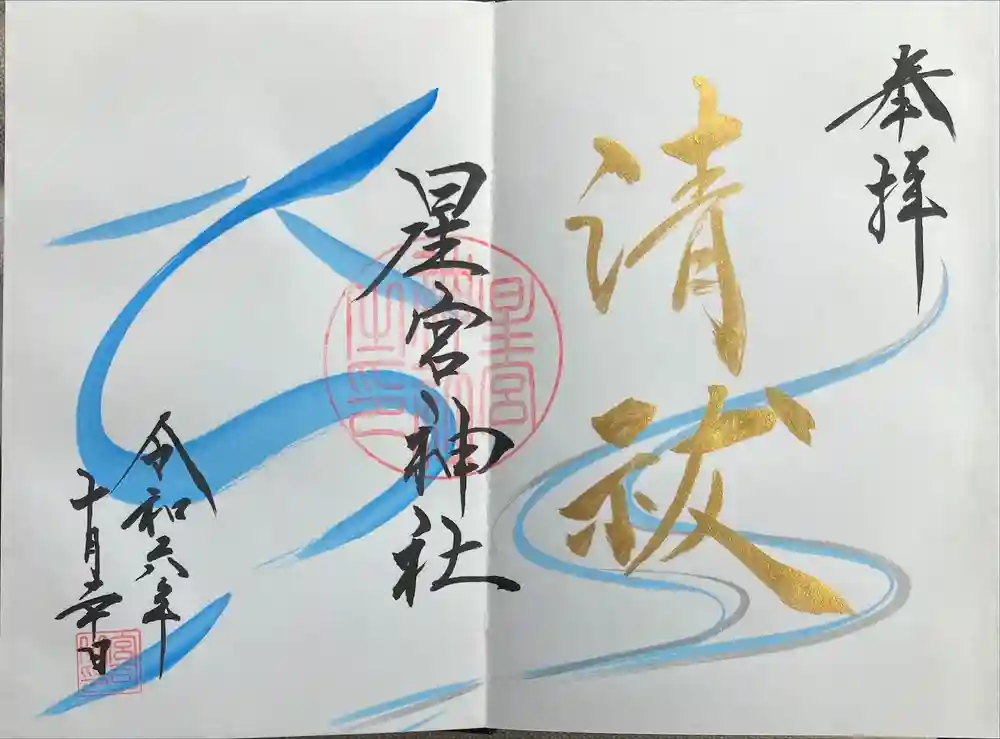 奉拝
清祓
星宮神社
星宮神社之印
令和六年
十月幸日